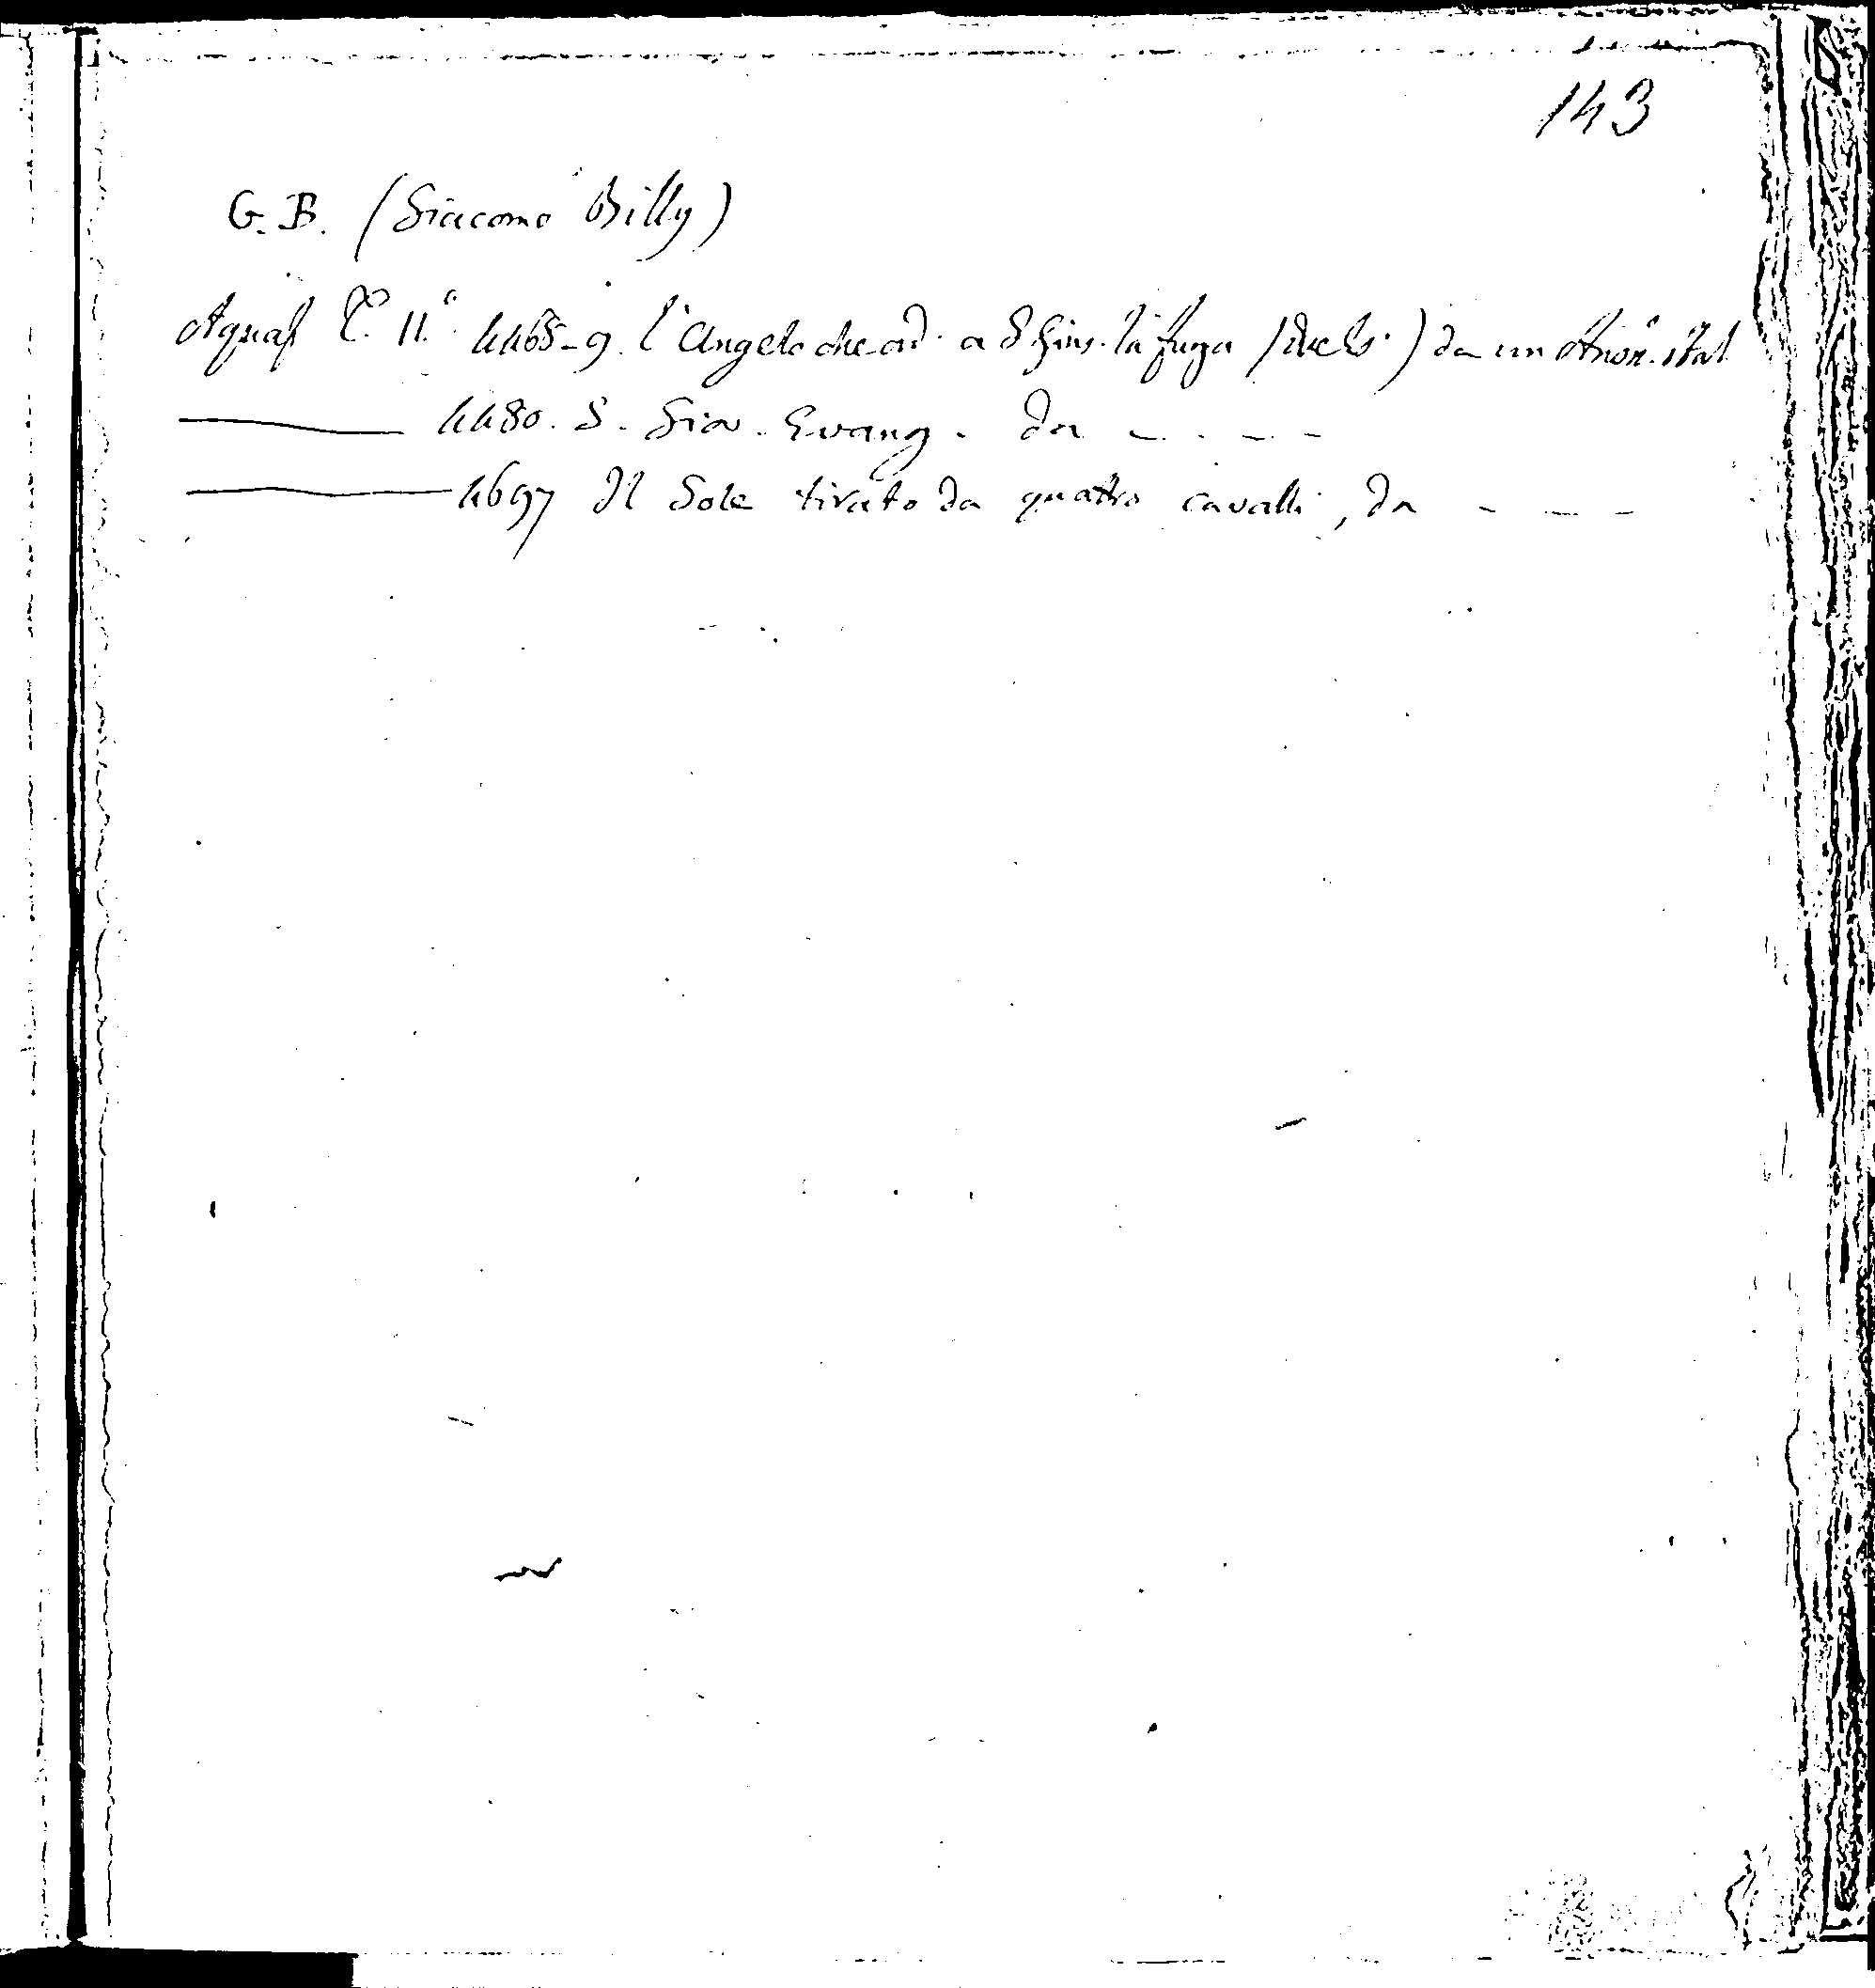 143
G. B. (Giacomo Billy)
T. II.° 4468-9. l'Angelo che ord. a S Gius. la fuga da un Anon. ital
4480. S. Giov. Evang. da - - - -
4697 Il Sole tirato da quatro cavalli, da - - - -